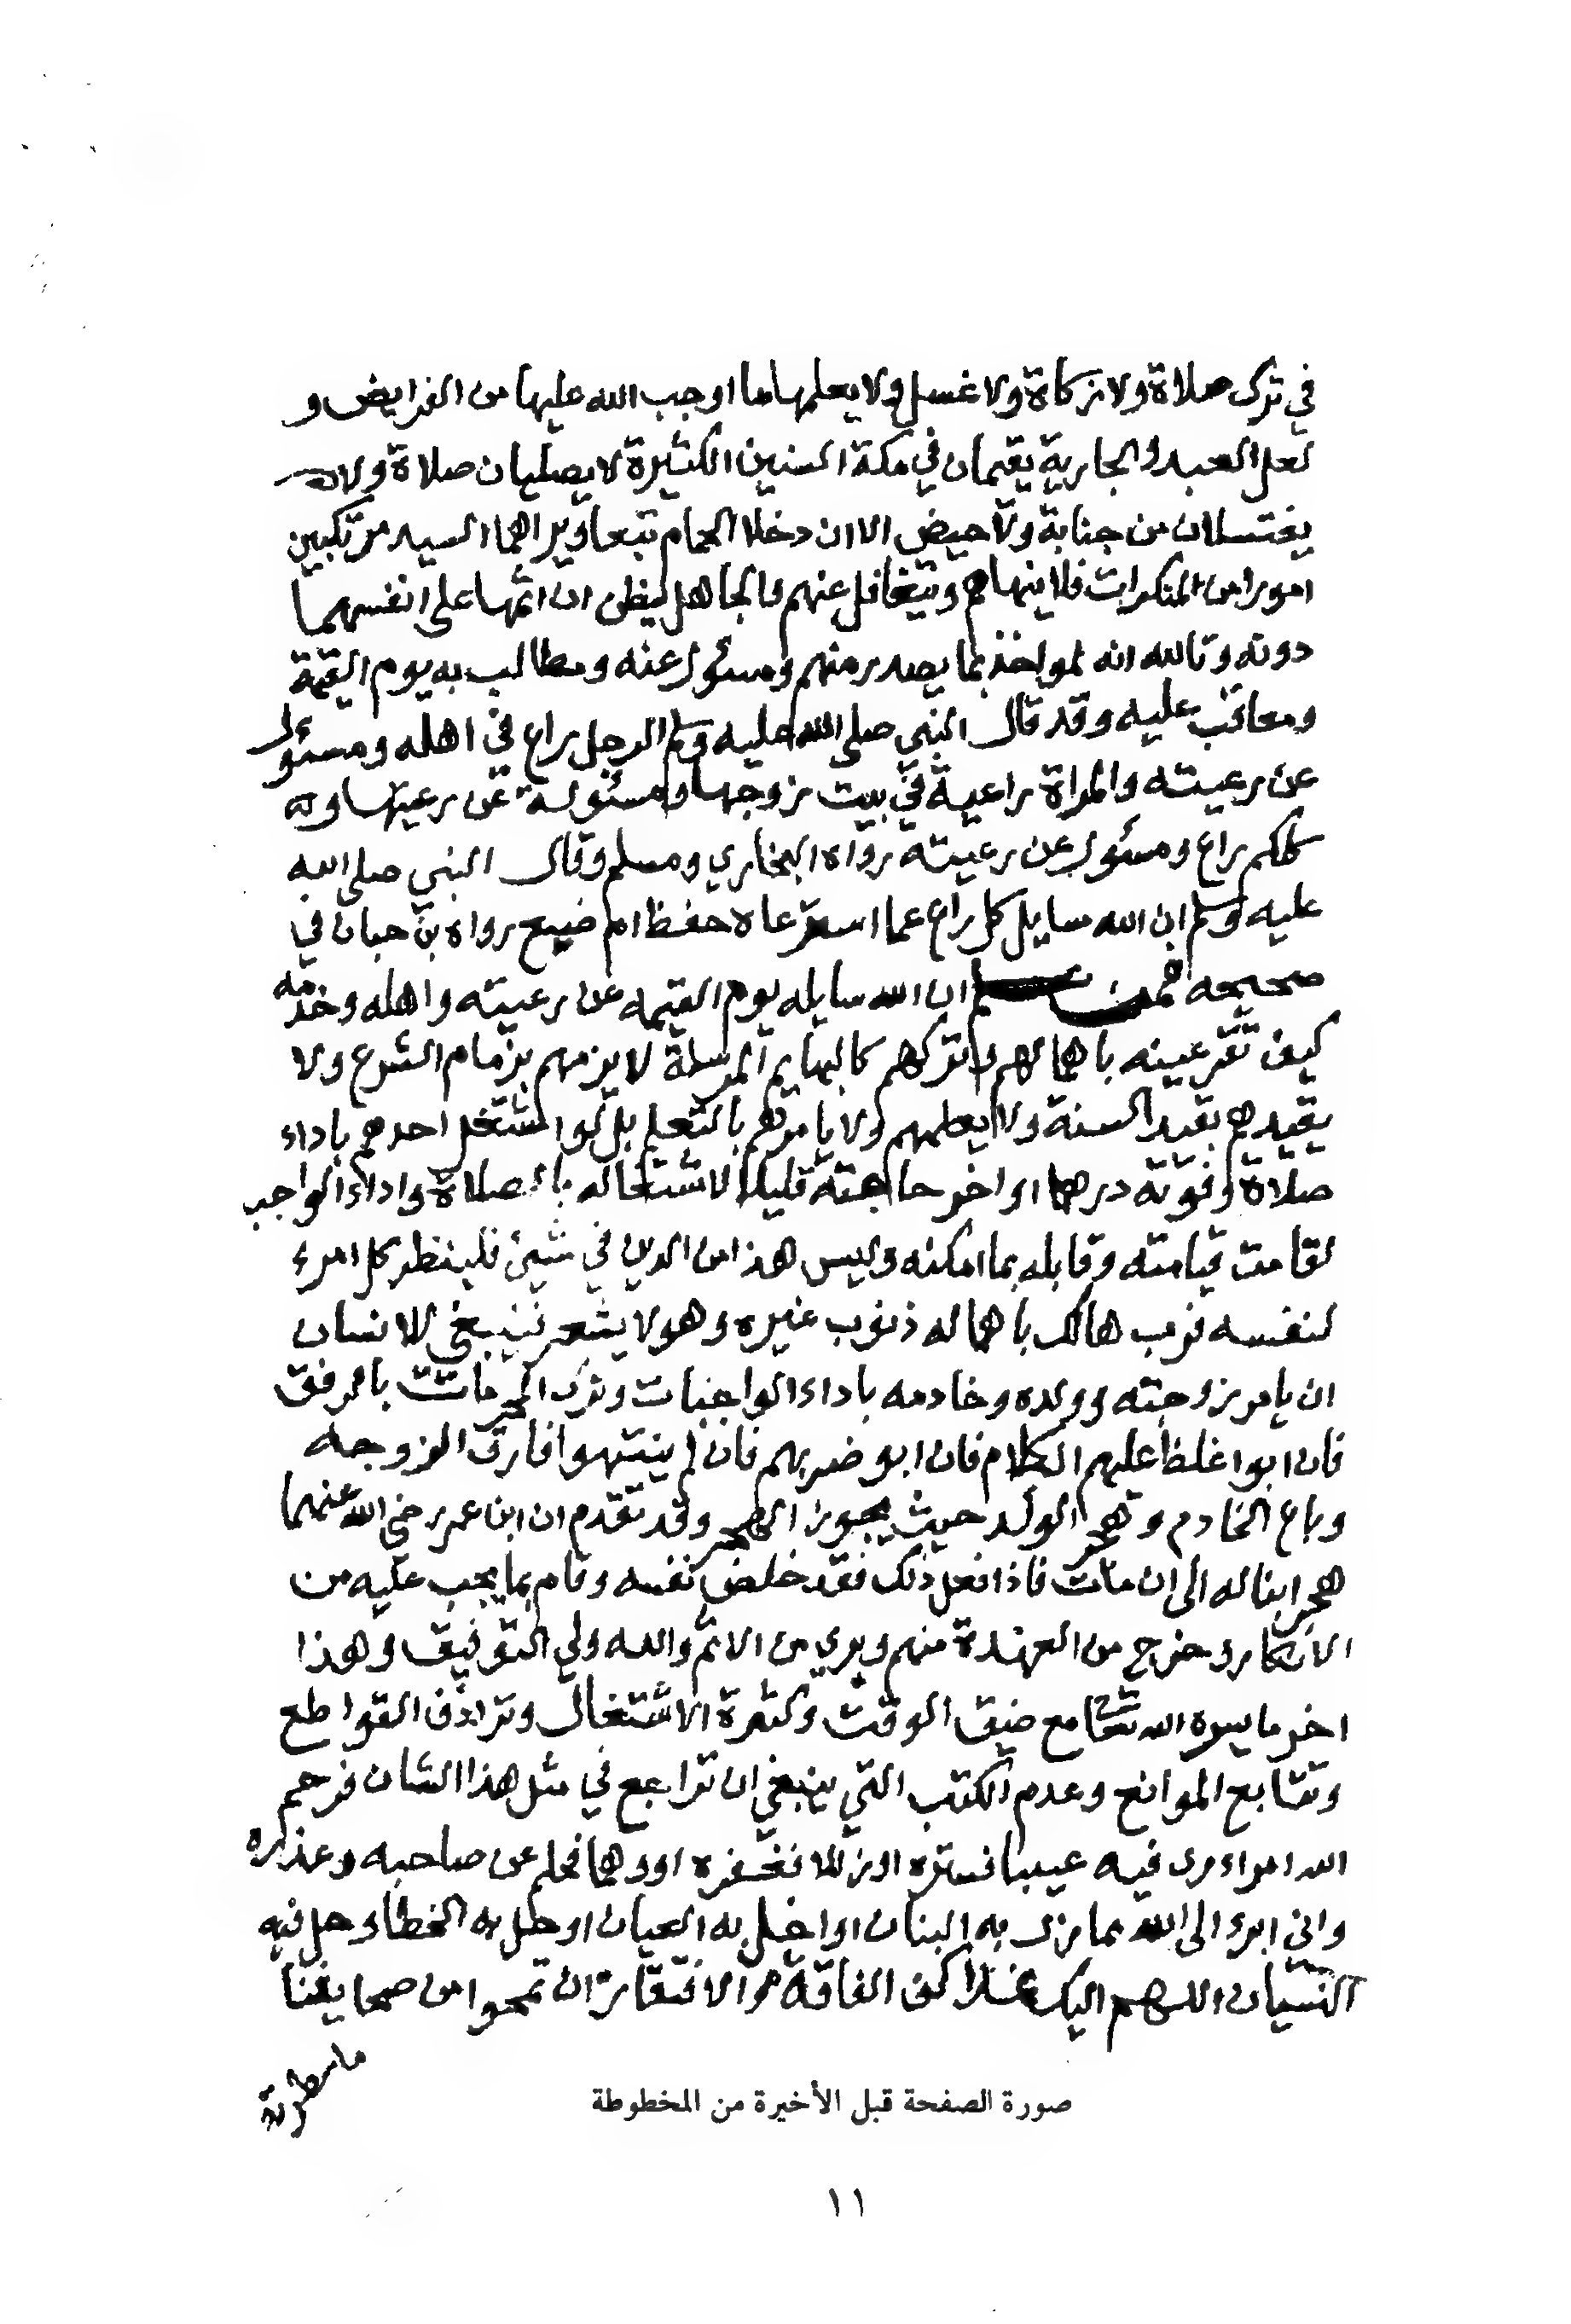 في ترك صلاة ولا زكاة ولا غسل ولا يعلمها ما اوجب الله عليها من الفرايض و
لعل العبد والجارية يقيمان في مكة السنين الكثيرة لا يصليان صلاة ولا
يغتسلان من جنابة ولا حيض الا ان دخلا الحمام تبعا ويراهما السيد مرتكبين
امورا من المنكرات فلا ينهاهم ويتغافل عنهم والجاهل يظن ان اثمها على انفسهما
دونه وتالله انه لمواخذ بما يصدر منهم ومسئول عنه ومطالب به يوم القيمة
ومعاقب عليه وقد قال النبي صلى الله عليه وسلم الرجل راع في اهله ومسئول
عن رعيته والمراة راعية في بيت زوجها ومسئولة عن رعيتها و
كلكم راع ومسئول عن رعيته رواه البخاري ومسلم وقال النبي صلى الله
عليه وسلم ان الله سايل كل راع عما استرعاه حفظ ام ضيع رواه بن حبان في
صحيحه فمن ان الله سايله يوم القيمه عن رعيته واهله وخدمه
كيف تقر عينه باهمالهم وتركهم كالبهايم المرسلة لا يزمهم بزمام الشرع ولا
يقيدهم بقيد السنة ولا يعلمهم ولا يامرهم بالتعلم بل لو اشتغل احدهم باداء
صلاة وفوته درهما او اخر حاجته قليلا لاشتغاله بالصلاة واداء الواجب
لقامت قيامته وقابله بما امكنه وليس هذا من الدين في شيئ فلينظر كل امرء
لنفسه فرب هالك باهماله ذنوب غيره وهو لا يشعر فينبغي للانسان
ان يامر زوجته وولده وخادمه باداء الواجبات وترك المحرمات بالرفق
فان ابوا غلظ عليهم الكلام فان ابو ضربهم فان لم ينتهوا فارق الزوجه
وباع الخادم وهجر الولد حيث يجوز الهجر وقد تقدم ان ابن عمر رضي الله عنهما
هجر ابنا له الى ان مات فاذا فعل ذلك فقد خلص نفسه وقام بما يجب عليه من
الانكار وخرج من العهدة منهم وبري من الاثم والله ولي التوفيق وهذا
اخر ما يسره الله تعا مع ضيق الوقت وكثرة الاشتغال وترادف القواطع
وتتابع الموانع وعدم الكتب التي ينبغي ان تراجع في مثل هذا الشان فرحم
الله امراء راى فيه عيبا فستره او زللا فغفره او وهما فحلم عن صاحبه وعذره
واني ابرء الى الله مما زل به البنان او اخل به العيان او حل به الخطاء وحل فيه
النسيان اللهم اليك اكف الفاقة والافتقار ان تمحوا من صحايفنا
ما سطرته
صورة الصفحة قبل الأخيرة من المخطوطة
١١